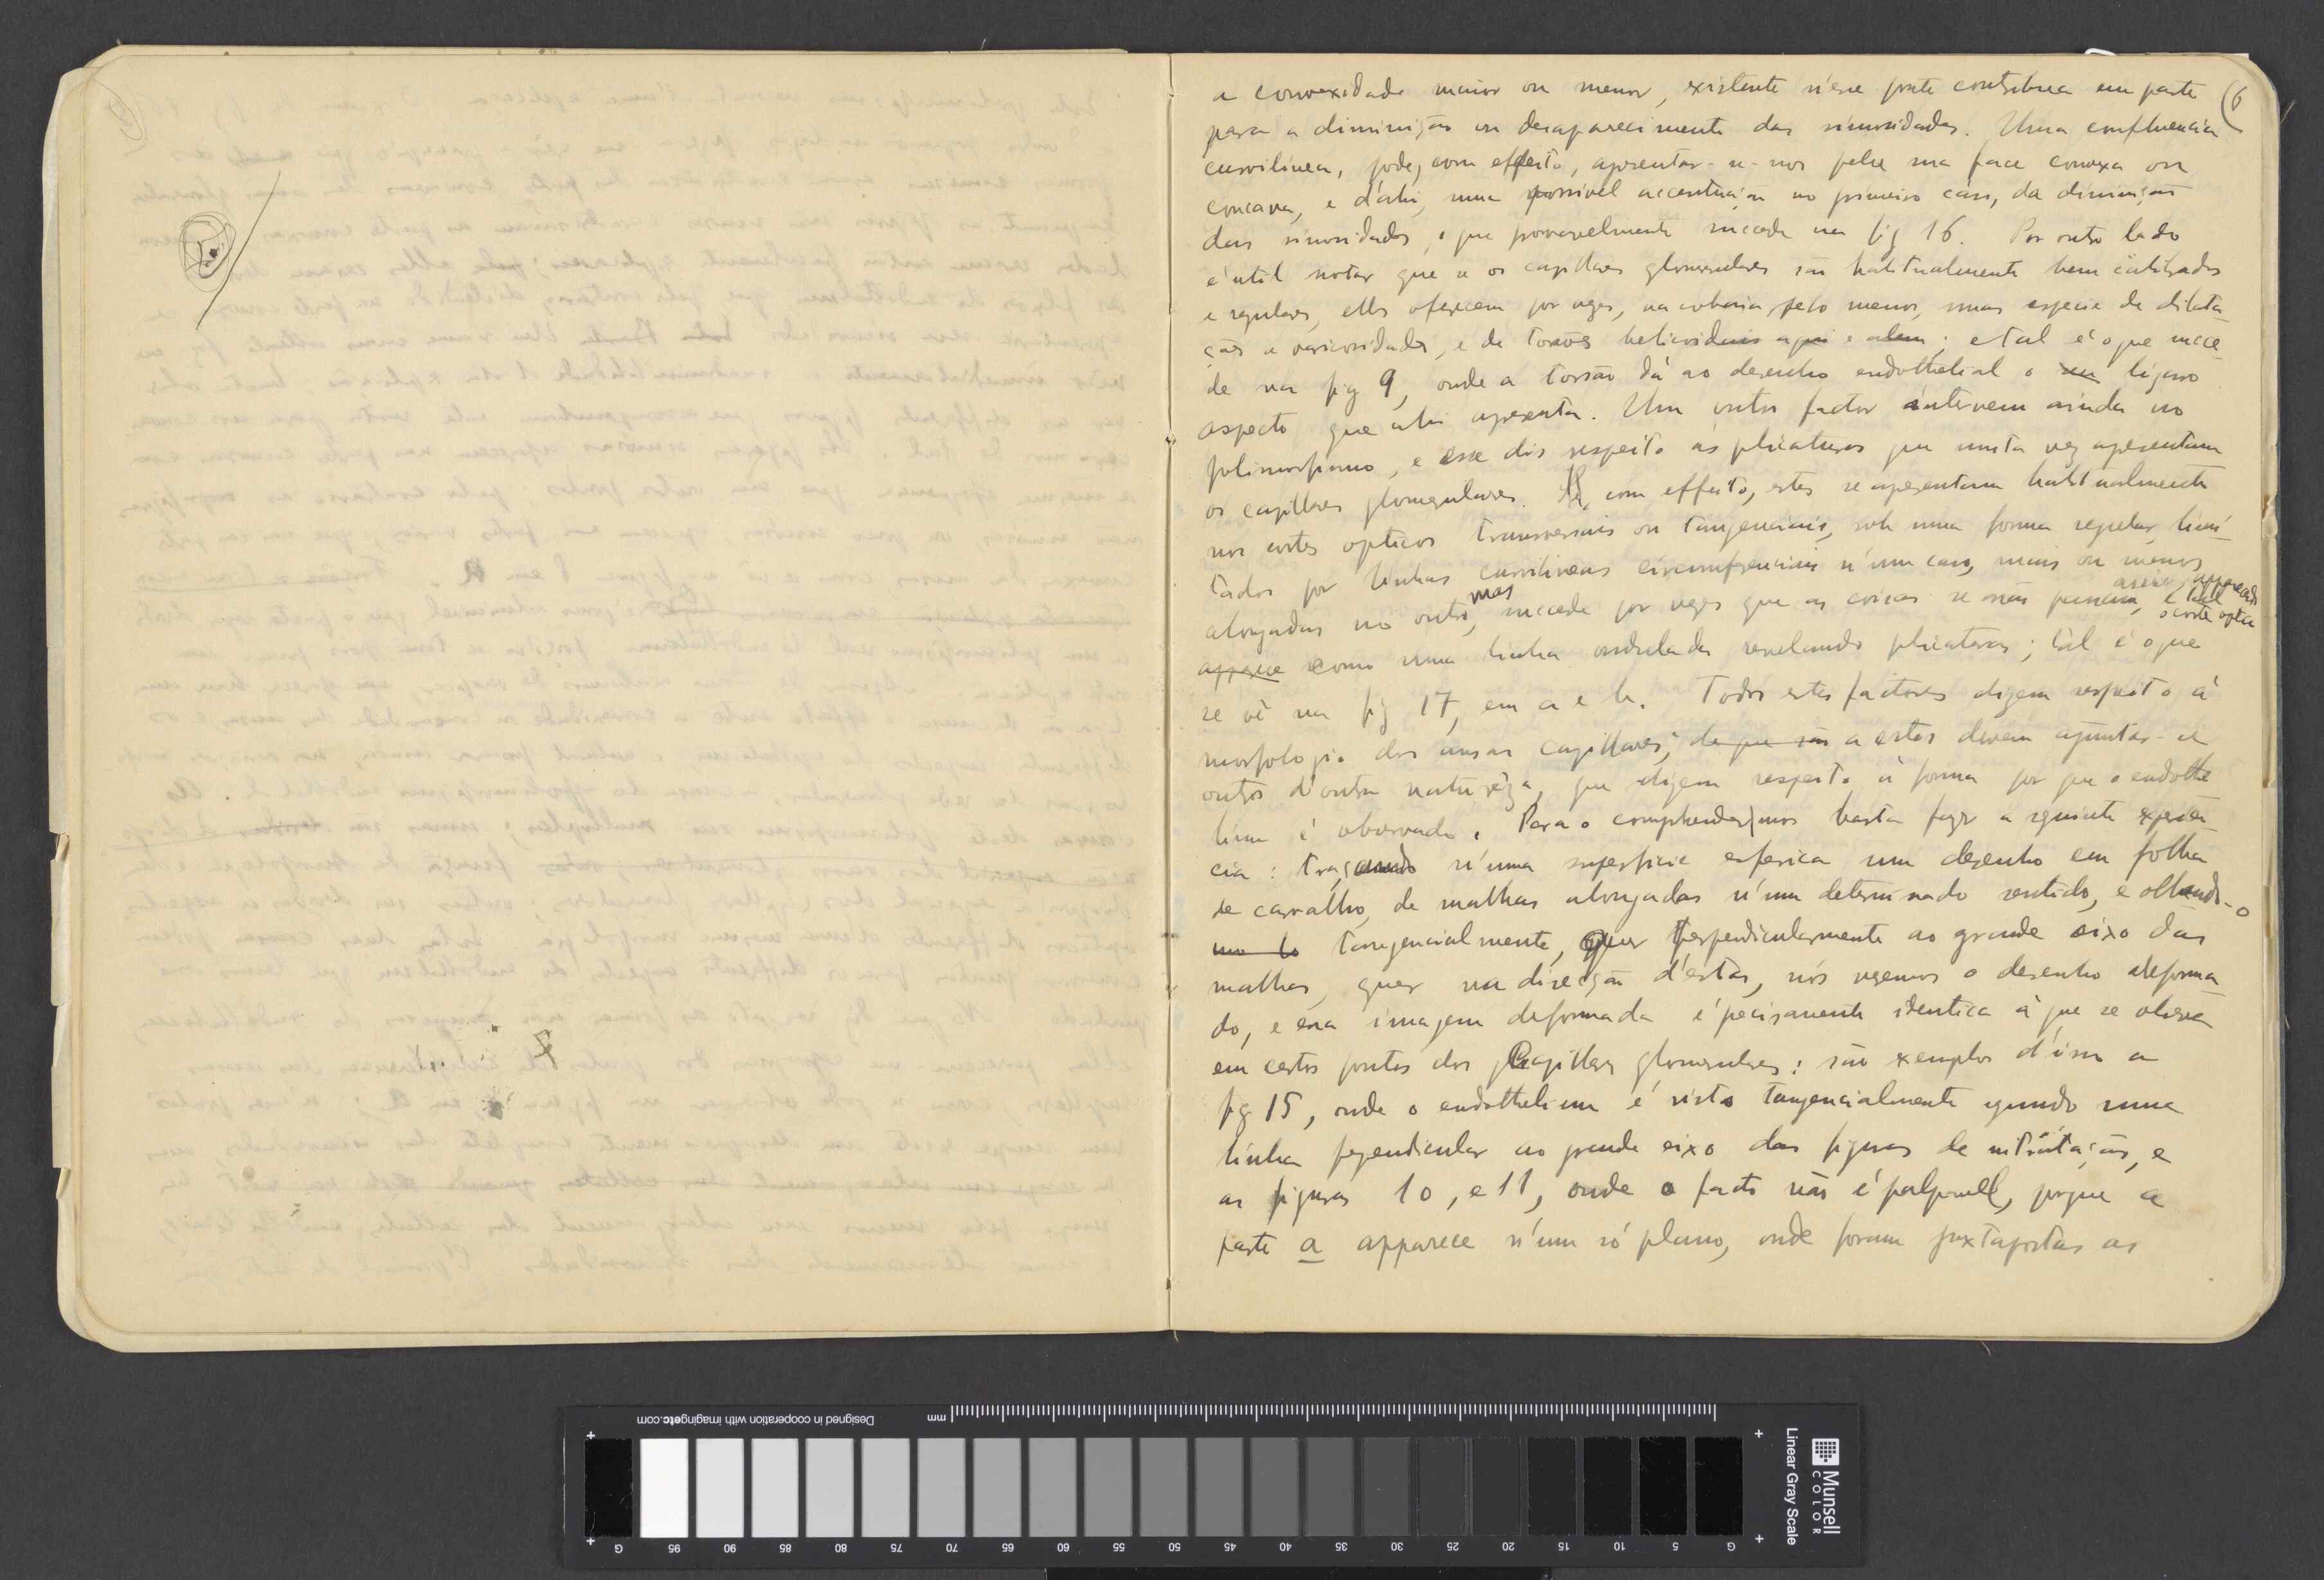 a convexidade maior ou menor, existente n'esse ponto contribua em parte (6
para a diminuição ou desaparecimento das sinuosidades. Uma confluencia
curvilinea, pode, com effeito, apresentar-se-nos pela sua face convexa ou
concava, e d'ahi, uma possivel accentuação no primeiro caso, da diminuição
das sinuosidades, o que provavelmente succede na fig 16. Por outro lado
é util notar que se os capillares glomerulares são habitualmente bem calibrados
e regulares, elles oferecem por vezes, na cobaia, pelo menos, umas especie de dilata-
ções e varicosidades, e de torsões helicoidais aqui e alem; e tal é o que succe-
de na fig 9, onde a torsão dá ao desenho endothelial o ligeiro
aspecto que ahi apresenta. Um outro factor intervem ainda no
polimorfismo, e esse diz respeito ás plicaturas que muita vez apresentam
os capillares glomerulares. Se, com effeito, estes se apresentam habitualmente
nos cortes opticos transversais ou tangenciais, sob uma forma regular, limi-
tados por linhas curvilineas circumferenciais n'um caso, mais ou menos
alongadas no outro, mas succede por vezes que as coisas se não passam assim, e tal apparece
o corte optico
apparece como uma linha ondulada revelando plicaturas; tal é o que
se vê na fig 17, em a e b. Todos estes factores dizem respeito á
morfologia das ansas capillares; de que são a estes devem ajuntar-se
outros d'outra natureza, que dizem respeito á forma por que o endothe-
lium é observado. Para o comprehendermos basta fazer a seguinte experien-
cia: traçando n'uma superficie esferica um desenho em folha
de carvalho, de malhas alongadas n'um determinado sentido, e olhando-o
tangencialmente, quer perpendicularmente ao grande eixo das
malhas, quer na direcção d'estas, nós vezemos o desenho deforma-
do, e essa imagem deformada é precisamente identica á que se observa
em certos pontos dos capillares glomerulares: são exemplos d'isso a
fig 15, onde o endothelium é visto tangencialmente segundo uma
linha perpendicular ao grande eixo das figuras de nitratação, e
as figuras 10, e 11, onde o facto não é palpavel, porque a
parte a apparece n'um só plano, onde foram juxtapostas as
Munsell
COLOR
Linear Gray Scale
Designed in cooperation with imagingetc.com
mm
G 95 90 85 80 75 70 65 60 55 50 45 40 35 30 25 20 15 10 5 G